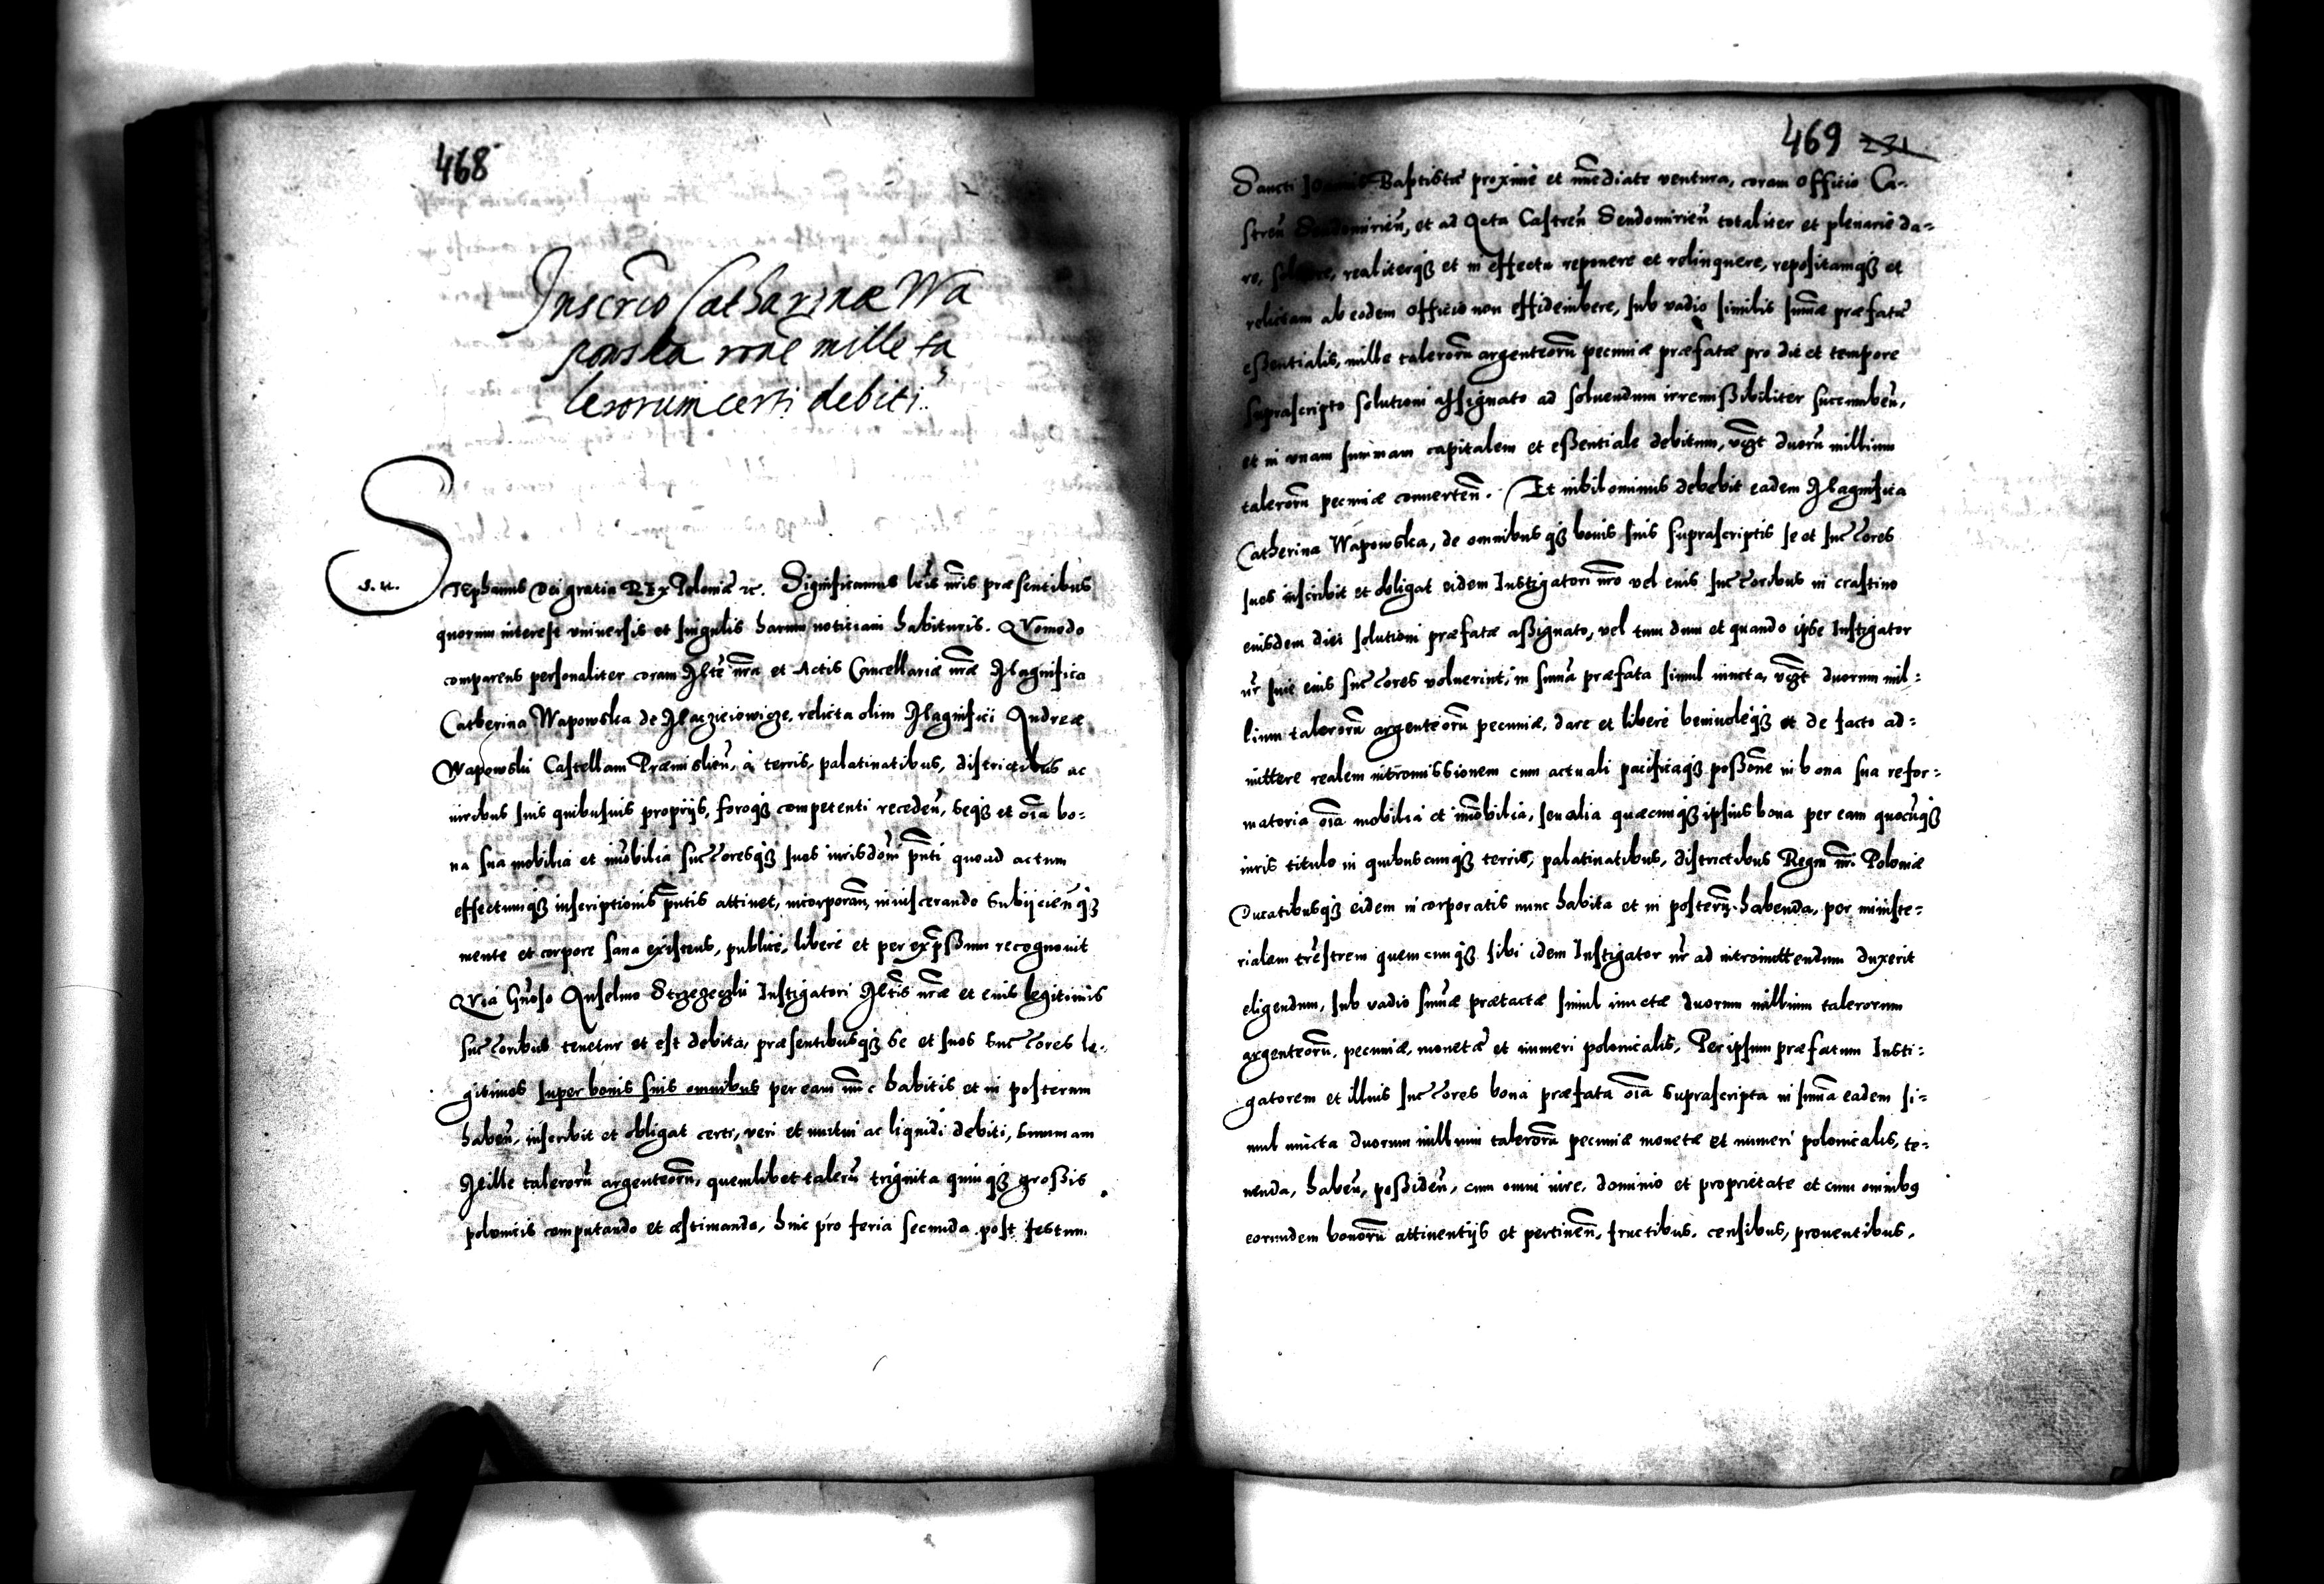 468
Inscr̃io Catharinæ Wa
powska rõne mille ta
lerorum certi debiti
S. R. STEphanus Dei gratia REx Poloniæ etc. Significamus l̃ris ñris præsentibus
quorum interest vniuersis et singulis harum notitiam habituris. QVomodo
comparens personaliter coram Mt̃te ñra et Actis Cancellariæ ñræ Magnifica
Catherina Wapowska de Macziciowicze, relicta olim Magnifici Andreæ
Wapowski Castellani Præmislieñ, à terris, palatinatibus, districtibus ac
iuribus suis quibusuis proprijs, foroq₃ competenti recedeñ, seq₃ et oĩa bo=
na sua mobilia et im̃obilia succ̃oresq₃ suos iurisdõni p̃nti quoad actum
effectumq₃ inscriptionis p̃ntis attinet, incorporañ, inuiscerando subijcieñq₃
mente et corpore sana existens, publicè, liberè et per exp̃ssum recognouit
QVia G̃noso Anselmo Strzezeczki Instigatori Mt̃tis ñræ et eius legitimis
succ̃oribus tenetur et est debita, præsentibusq₃ se et suos succ̃ores le=
gitimos super bonis suis omnibus per eam nunc habitis et in posterum
habeñ, inscribit et obligat certi, veri et mutui ac liquidi debiti, summam
Mille talerorũ argenteorũ, quemlibet talerũ triginta quinq₃ grossis
polonicis computando et æstimando, hinc pro feria secunda post festum
469 231
Sancti Joannis Baptistæ proximè et im̃ediate ventura, coram Officio Ca=
streñ Sendomirieñ, et ad Acta Castreñ Sendomirieñ totaliter et plenariè da=
re, soluere, realiterq₃ et in effectu reponere et relinquere, repositamq₃ et
relictam ab eodem Officio non effideiubere, sub vadio similis sum̃æ præfatæ
essentialis, mille talerorũ argenteorũ pecuniæ præfatæ pro die et tempore
suprascripto solutioni assignato ad soluendum irremissibiliter succumbeñ,
et in vnam summam capitalem et essentiale debitum, vz̃t duorũ millium
talerorũ pecuniæ conuerteñ. Et nihilominus debebit eadem Magnifica
Catherina Wapowska, de omnibusq₃ bonis suis suprascriptis se et succ̃ores
suos inscribit et obligat eidem Instigatori ñro vel eius succ̃oribus in crastino
eiusdem diei solutioni præfatæ assignato, vel tum dum et quando ipse Instigator
ñr siue eius succ̃ores voluerint, in sum̃a præfata simul iuncta, vz̃t duorum mil=
lium talerorũ argenteorũ pecuniæ, dare et liberè beniuolèq₃ et de facto ad=
mittere realem intromissionem cum actuali pacificaq₃ possõne in bona sua refor=
matoria oĩa mobilia et im̃obilia, seu alia quæcunq₃ ipsius bona per eam quocũq₃
iuris titulo in quibuscunq₃ terris, palatinatibus, districtibus Regni ñri Poloniæ
Ducatibusq₃ eidem incorporatis nunc habita et in posterũ habenda, per ministe=
rialem tr̃estrem quemcunq₃ sibi idem Instigator ñr ad intromittendum duxerit
eligendum, sub vadio sum̃æ prætactæ simul iunctæ duorum millium talerorum
argenteorũ, pecuniæ, monetæ et numeri polonicalis, Per ipsum præfatum Insti=
gatorem et illius succ̃ores bona præfata oĩa suprascripta in sum̃a eadem si=
mul iuncta duorum millium talerorũ pecuniæ monetæ et numeri polonicalis, te=
nenda, habeñ, possideñ, cum omni iure, dominio et proprietate et cum omnibꝰ
eorundem bonorũ attinentijs et pertineñ, fructibus, censibus, prouentibus,